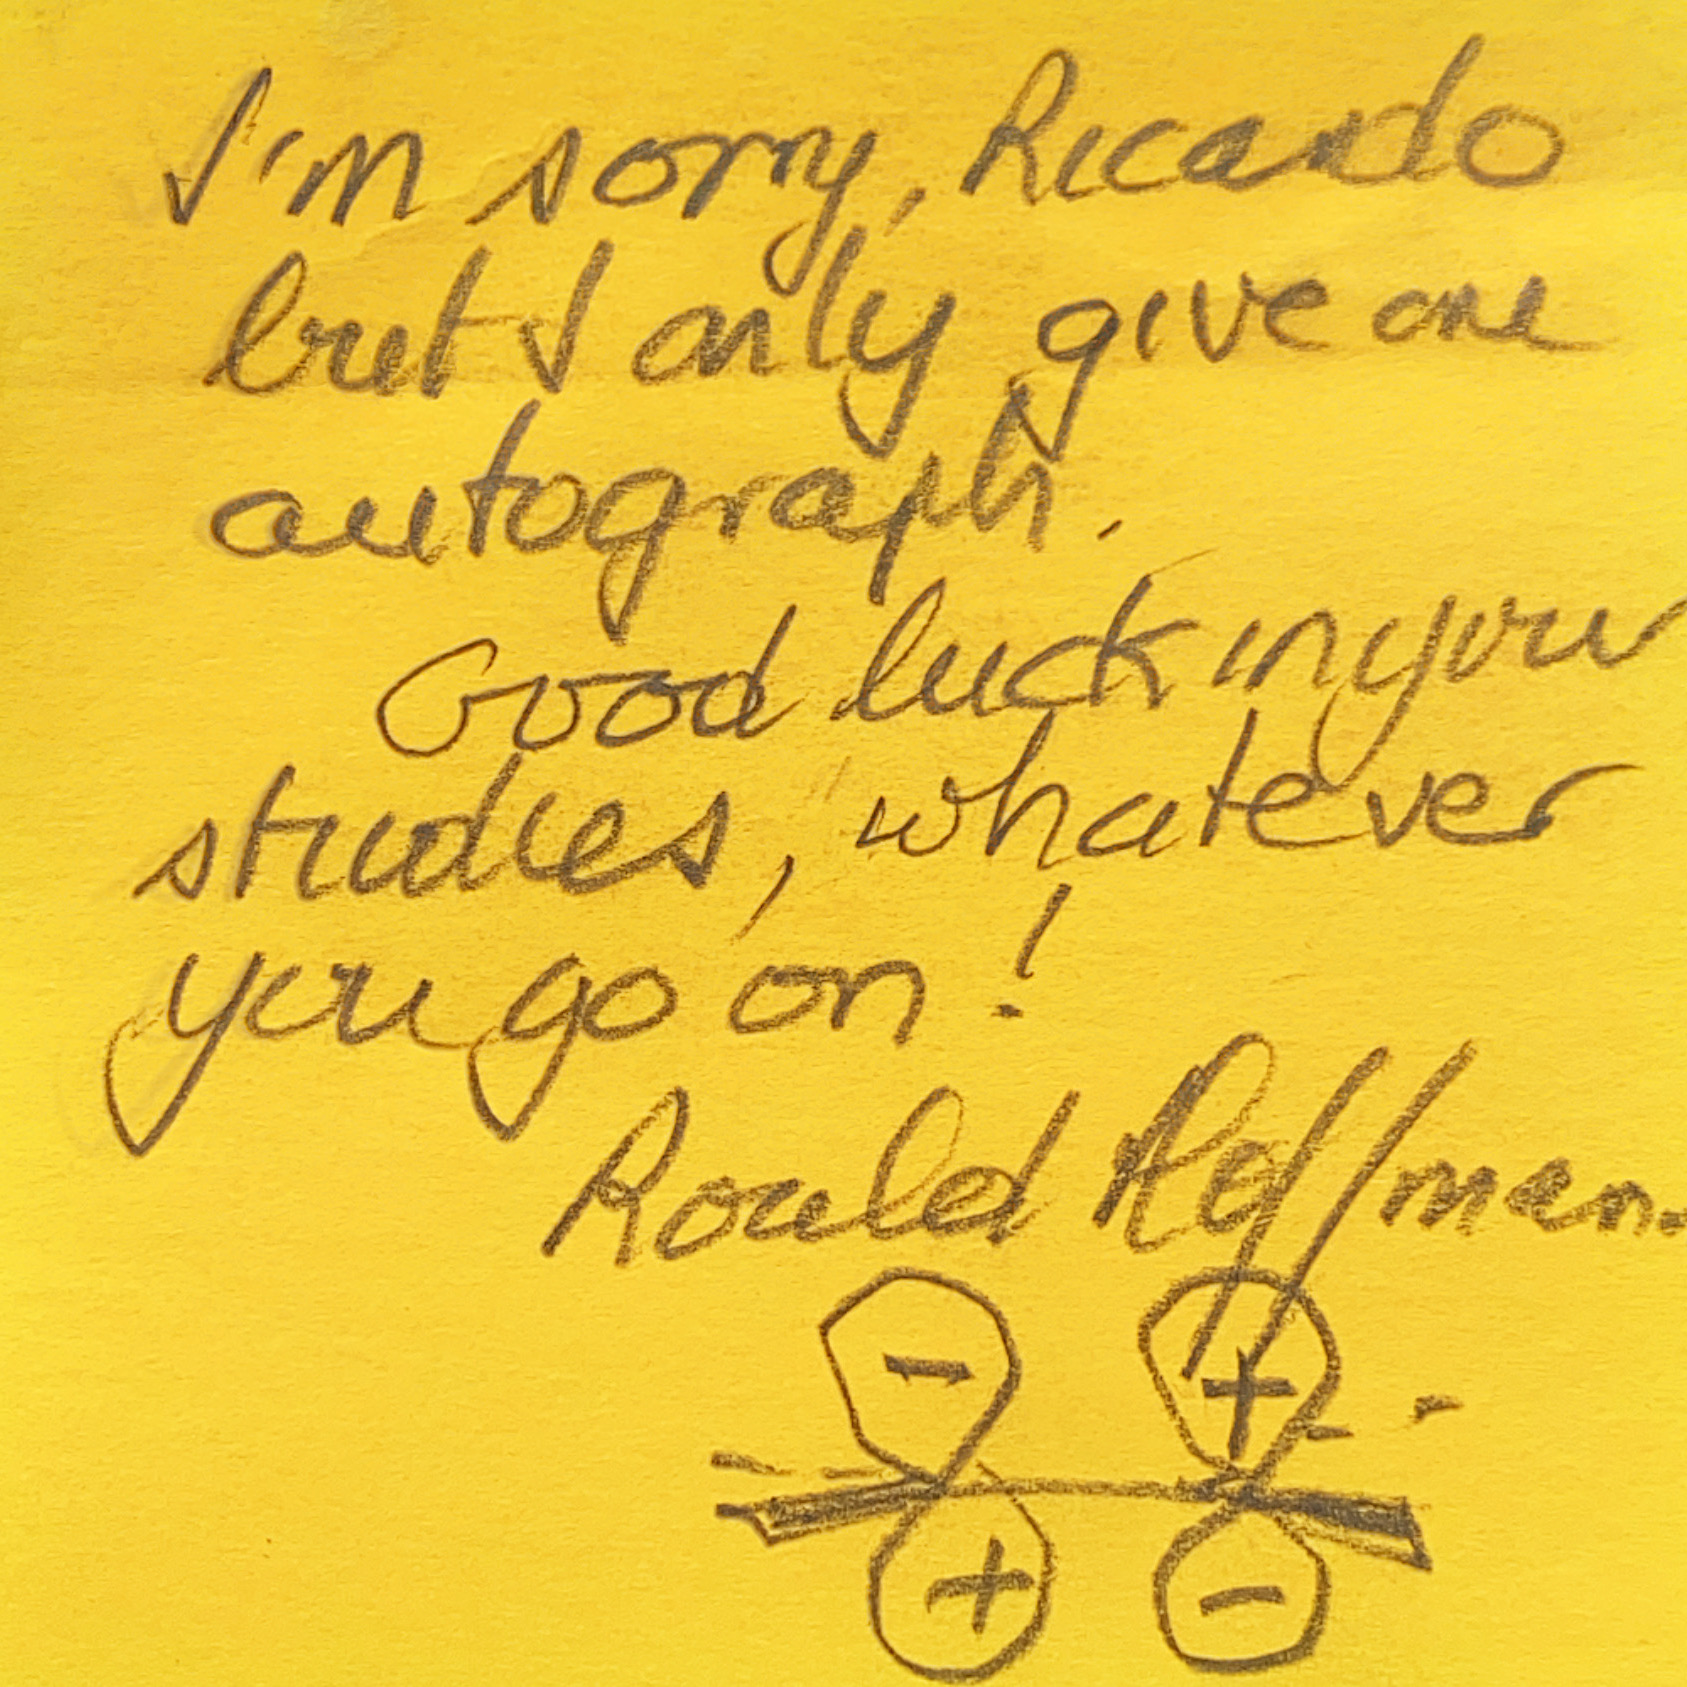 I'm sorry, Ricardo
but I only give one
autograph.
Good luck in your
studies, whatever
you go on!
Roald Hoffmann.
- +
+ -